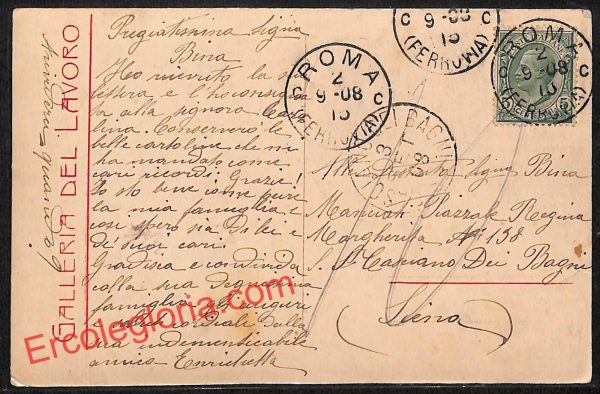 GALLERIA DEL LAVORO
Pregiatissima Signa
Bina
Ho ricevuto la s
lettera e l'ho consegna
ta alla signora Car
lina. Conserverò le
belle cartoline che mi
ha mandato come
cari ricordi. Grazie!
Io sto bene come pure
la mia famiglia, e
così spero sia di lei e
de' suoi cari.
Gradisca e condivida
colla sua
famiglia auguri
cordiali dalla
sua indimenticabile
amica Enrichetta
ROMA
2
9-08
15
(FERROVIA)
C C
9-08
15
(FERROVIA)
ROMA
2
9-08
15
(FERROVIA)
5
BAGNI
08
Signa Bina
Manciati Piazzale Regina
Margherita No 138
S. Casciano Dei Bagni
(Siena)
Ercolegloria.com